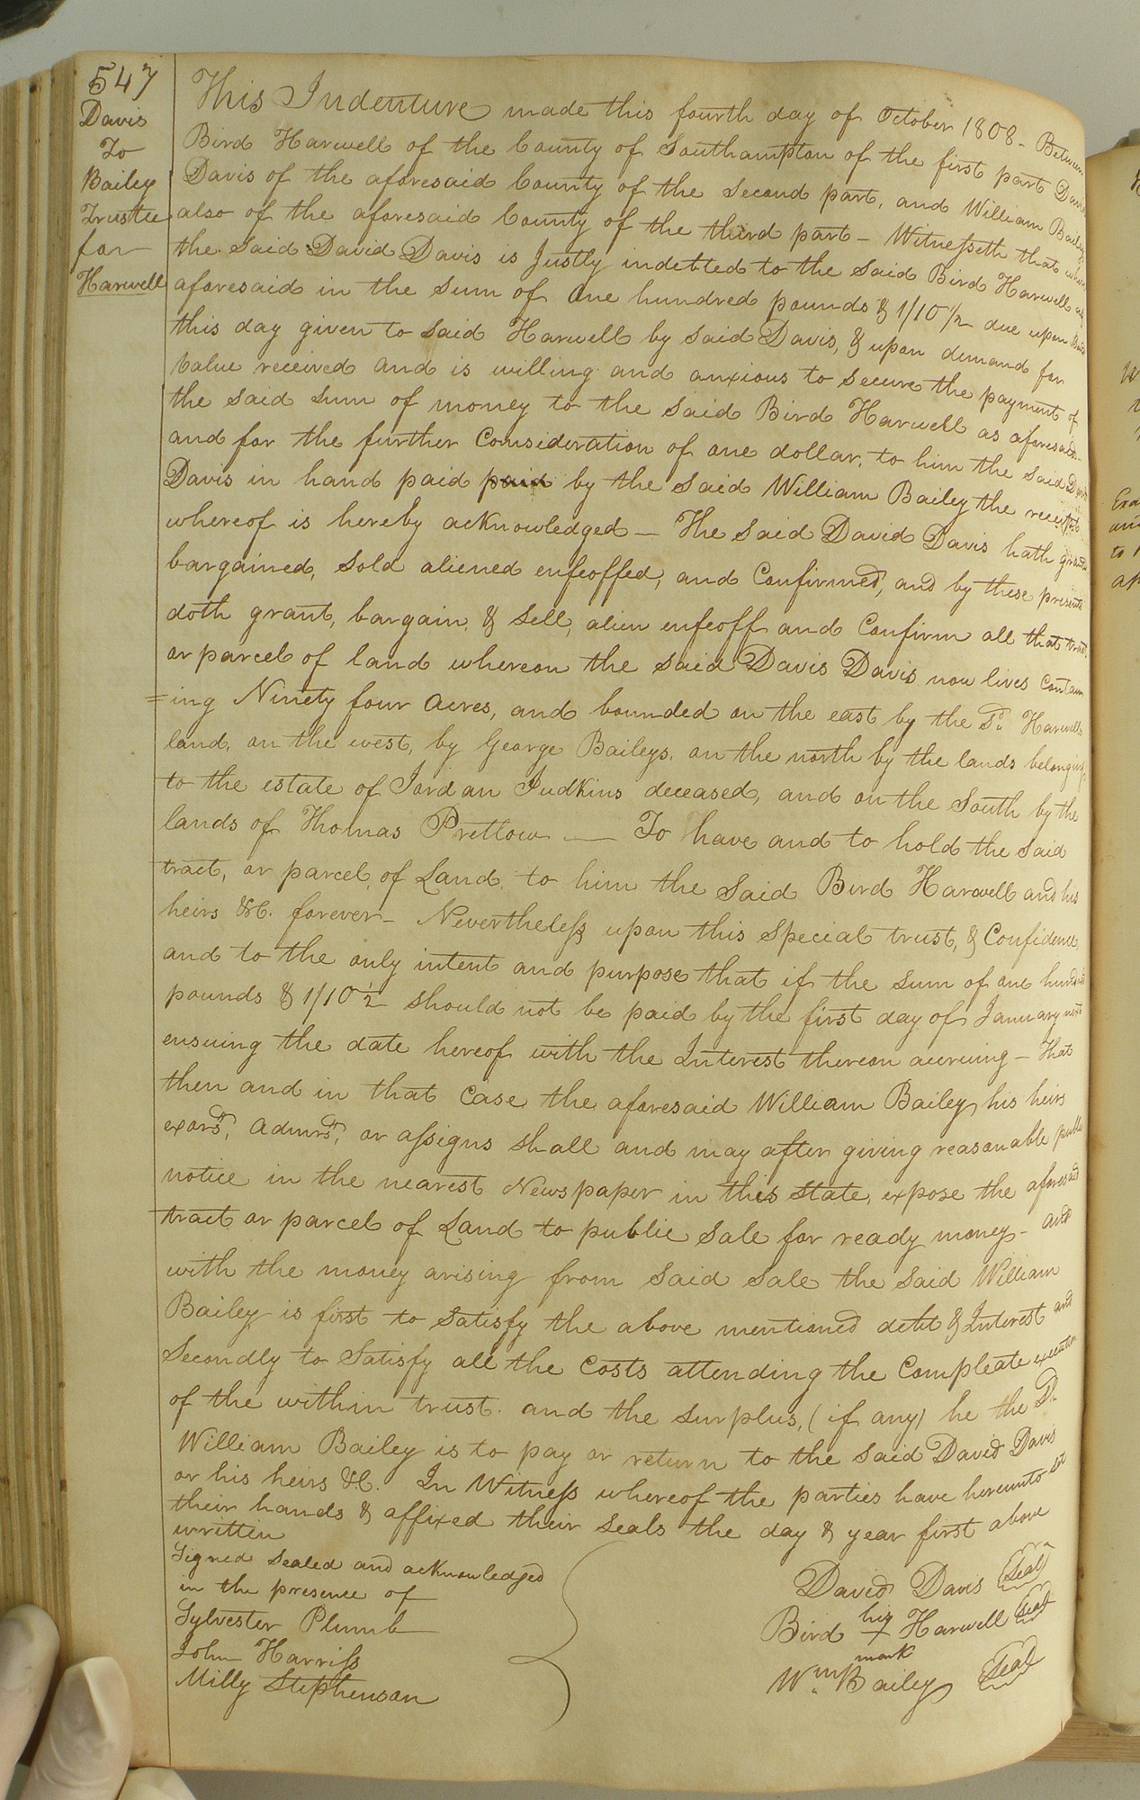 547
Davis
To
Bailey
Trustee
for
Harwell
This Indenture made this fourth day of October 1808 - Between
Bird Harwell of the County of Southampton of the first part David
Davis of the aforesaid County of the Second part, and William Bailey
also of the aforesaid County of the third part - Witnesseth that
the Said David Davis is Justly indebted to the Said Bird Harwell as
aforesaid in the Sum of One hundred pounds & 1/10 1/2 due upon
this day given to Said Harwell by Said Davis, & upon demand for
Value received and is willing and anxious to Secure the payment of
the Said Sum of money to the Said Bird Harwell as aforesaid
and for the further Consideration of one dollar, to him the Said
Davis in hand paid paid by the Said William Bailey the receipt
whereof is hereby acknowledged - The Said David Davis hath granted
bargained, Sold aliened enfeoffed, and Confirmed, and by these presents
doth grant, bargain, & Sell, alien enfeoff and Confirm all that tract
or parcel of land whereon the Said Davis Davis now lives Contain
=ing Ninety four Acres, and bounded on the east by the Sd. Harwells
land, on the west, by George Baileys. on the north by the lands belonging
to the estate of Jordan Judkins deceased, and on the South by the
lands of Thomas Pretlow - To have and to hold the Said
tract, or parcel, of Land, to him the Said Bird Harwell and his
heirs &C. forever - Nevertheless upon this Special trust, & Confidence
and to the only intent and purpose that if the Sum of one hundred
pounds & 1/10 1/2 should not be paid by the first day of January next
ensuing the date hereof with the Interest thereon accruing - That
then and in that Case the aforesaid William Bailey his heirs
exors, Admrs, or assigns shall and may after giving reasonable public
notice in the nearest Newspaper in this State, expose the aforesaid
tract or parcel of Land to public Sale for ready money - and
with the money arising from Said Sale the Said William
Bailey is first to Satisfy the above mentioned debt & Interest and
Secondly to Satisfy all the Costs attending the Compleate execution
of the within trust. and the Surplus, (if any) he the Sd.
William Bailey is to pay or return to the Said David Davis
or his heirs &C. In Witness whereof the parties have hereunto set
their hands & affixed their Seals the day & year first above
written
Signed Sealed and acknowledged
in the presence of
Sylvester Plumb
John Harriss
Milly Stephenson
David Davis Seal
Bird his X mark Harwell Seal
Wm. Bailey Seal